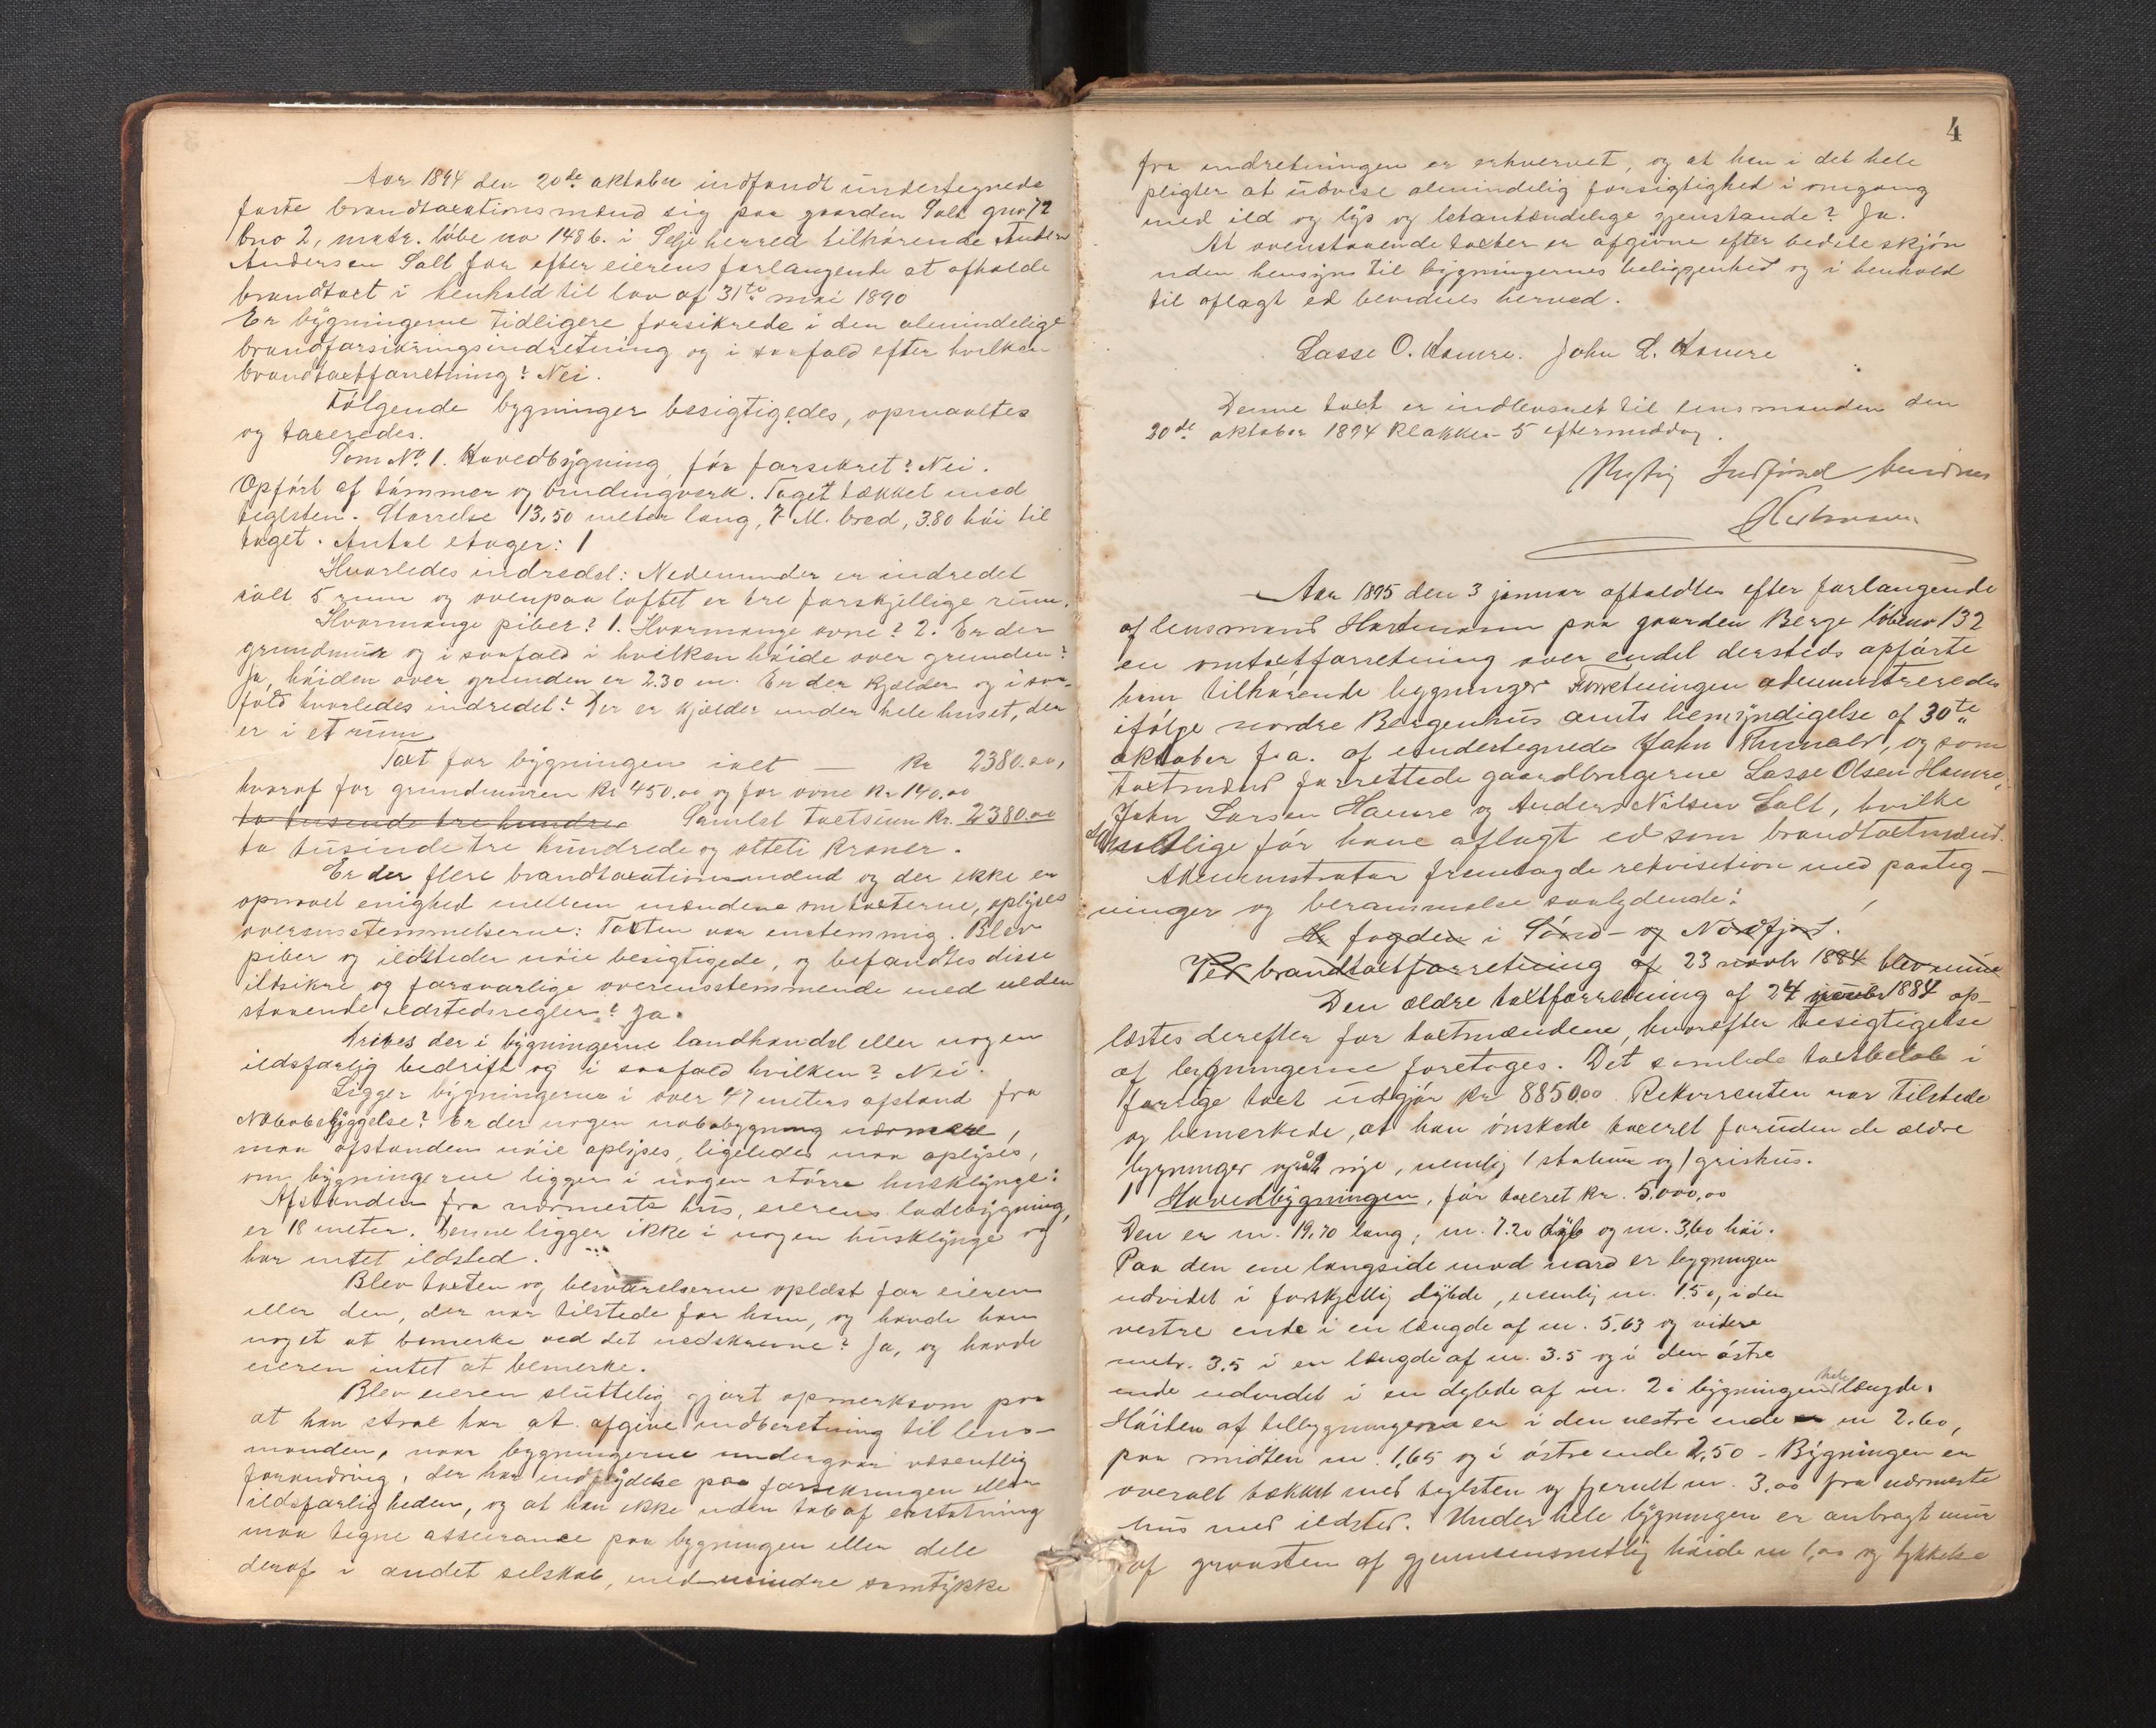 Aar 1894 den 20de oktober indfandt undertegnede
faste brandtaxationsmænd sig paa gaarden Salt gno 72
bno 2, matr. løbe no 148 b. i Selje herred tilhørende Anders
Andersen Salt for efter eierens forlangende at afholde
brandtaxt i henhold til lov af 31te mai 1890
Er bygningerne tidligere forsikrede i den almindelige
brandforsikringsindretning og i saafald efter hvilken
brandtaxtforretning? Nei.
Følgende bygninger besigtigedes, opmaaltes
og taxeredes.
Som No. 1. Hovedbygning, før forsikret? Nei.
Opført af tømmer og bindingverk. Taget tækket med
teglsten. Størrelse 13,50 meter lang, 7 M. bred, 3.80 høi til
taget. Antal etager: 1
Hvorledes indredet: Nedenunder er indredet
ialt 5 rum og ovenpaa loftet er tre forskjellige rum.
Hvormange piber? 1. Hvormange ovne? 2. Er der
grundmur og i saafald i hvilken høide over grunden?
Ja, høiden over grunden er 2.30 m. Er der kjælder og i saa-
fald hvorledes indredet? Der er kjælder under hele huset, der
er i et rum
Taxt for bygningen ialt — Kr 2380.00,
hvoraf for grundmuren Kr 450.00 og for ovne Kr 140.00
to tusende tre hundre Samlet taxtsum Kr. 2380.00
to tusinde tre hundrede og otteti kroner.
Er der flere brandtaxationsmænd og der ikke er
opnaaet enighed mellem mændene om taxterne, oplyses
overensstemmelserne: Taxten var enstemmig. Blev
piber og ildsteder nøie besigtigede, og befandtes disse
ildsikre og forsvarlige overensstemmende med neden
staaende ildstedsregler? Ja.
Drives der i bygningerne landhandel eller nogen
ildsfarlig bedrift og i saafald hvilken? Nei.
Ligger bygningerne i over 47 meters afstand fra
Nabobebyggelse? Er der nogen nabobygning nærmere,
maa afstanden nøie oplyses, ligeledes maa oplyses,
om bygningerne ligger i nogen større husklynge:
Afstanden fra nærmeste hus, eierens ladebygning,
er 18 meter. Denne ligger ikke i nogen husklynge og
har intet ildsted.
Blev taxten og besvarelserne oplæst for eieren
eller den, der var tilstede for ham, og havde han
noget at bemerke ved det nedskrevne? Ja, og havde
eieren intet at bemerke.
Blev eieren sluttelig gjort opmerksom paa
at han strax har at afgive indberetning til lens-
manden, naar bygningerne undergaar væsentlig
forandring, der har indflydelse paa forsikringen eller
ildsfarligheden, og at han ikke uden tab af erstatning
maa tegne assurance paa bygningen eller dele
deraf i andet selskab, medmindre samtykke
4
fra indretningen er erhvervet, og at han i det hele
pligter at udvise almindelig forsigtighed i omgang
med ild og lys og letantændelige gjenstande? Ja.
At ovenstaaende taxter er afgivne efter bedste skjøn
uden hensyn til bygningernes beliggenhed og i henhold
til aflagt ed bevidnes herved.
Lasse O. Hamre. John L. Hamre
Denne taxt er indleveret til lensmanden den
20de oktober 1894 klokken 5 eftermiddag.
Rigtig Indført bevidnes
Hartmann
Aar 1895 den 3 januar afholdtes efter forlangende
af lensmand Hartmann paa gaarden Berge løbeno 132
en omtaxtforretning over endel dersteds opførte
ham tilhørende bygninger. Forretningen administreredes
ifølge nordre Bergenhus amts bemyndigelse af 30te
oktober f.a. af undertegnede John, og som
taxtmænd forrettede gaardbrugerne Lasse Olsen Hamre,
John Larsen Hamre og Anders Nilsen Salt, hvilke
samtlige før have aflagt ed som brandtaxtmænd.
Administrator fremlagde rekvisition med paateg-
ninger og berammelse saalydende:
fogden i Sønd- og Nordfjord.
Ved brandtaxtforretning af 23 novbr 1884 blev mine
Den ældre taxtforretning af 24 1884 op-
læstes derefter for taxtmændene, hvorefter besigtigelse
af bygningerne foretoges. Det samlede taxtbeløb i
forrige taxt udgjør Kr 8850.00. Rekvirenten var tilstede
og bemerkede, at han ønskede taxeret foruden de ældre
bygninger også nye, nemlig 1 stabur og 1 grishus.
1 Hovedbygningen, før taxeret kr. 5.000,00
Den er m. 19,70 lang, m. 7.20 dyb og m. 3,60 høi.
Paa den ene langside mod nord er bygningen
udvidet i forskjellig dybde, nemlig m. 1.50, i den
vestre ende i en længde af m. 5,63 og videre
metr. 3.5 i en længde af m. 3.5 og i den østre
ende udvidet i en dybde af m. 2 i bygningens hele længde.
Høiden af tilbygningerne er i den vestre ende m 2.60,
paa midten m. 1,65 og i østre ende 2,50 - Bygningen er
overalt tækket med teglsten og fjernet m. 3,00 fra nærmeste
hus med ildsted. Under hele bygningen er anbragt mur
af graasten af gjennemsnitlig høide m 1,00 og tykkelse